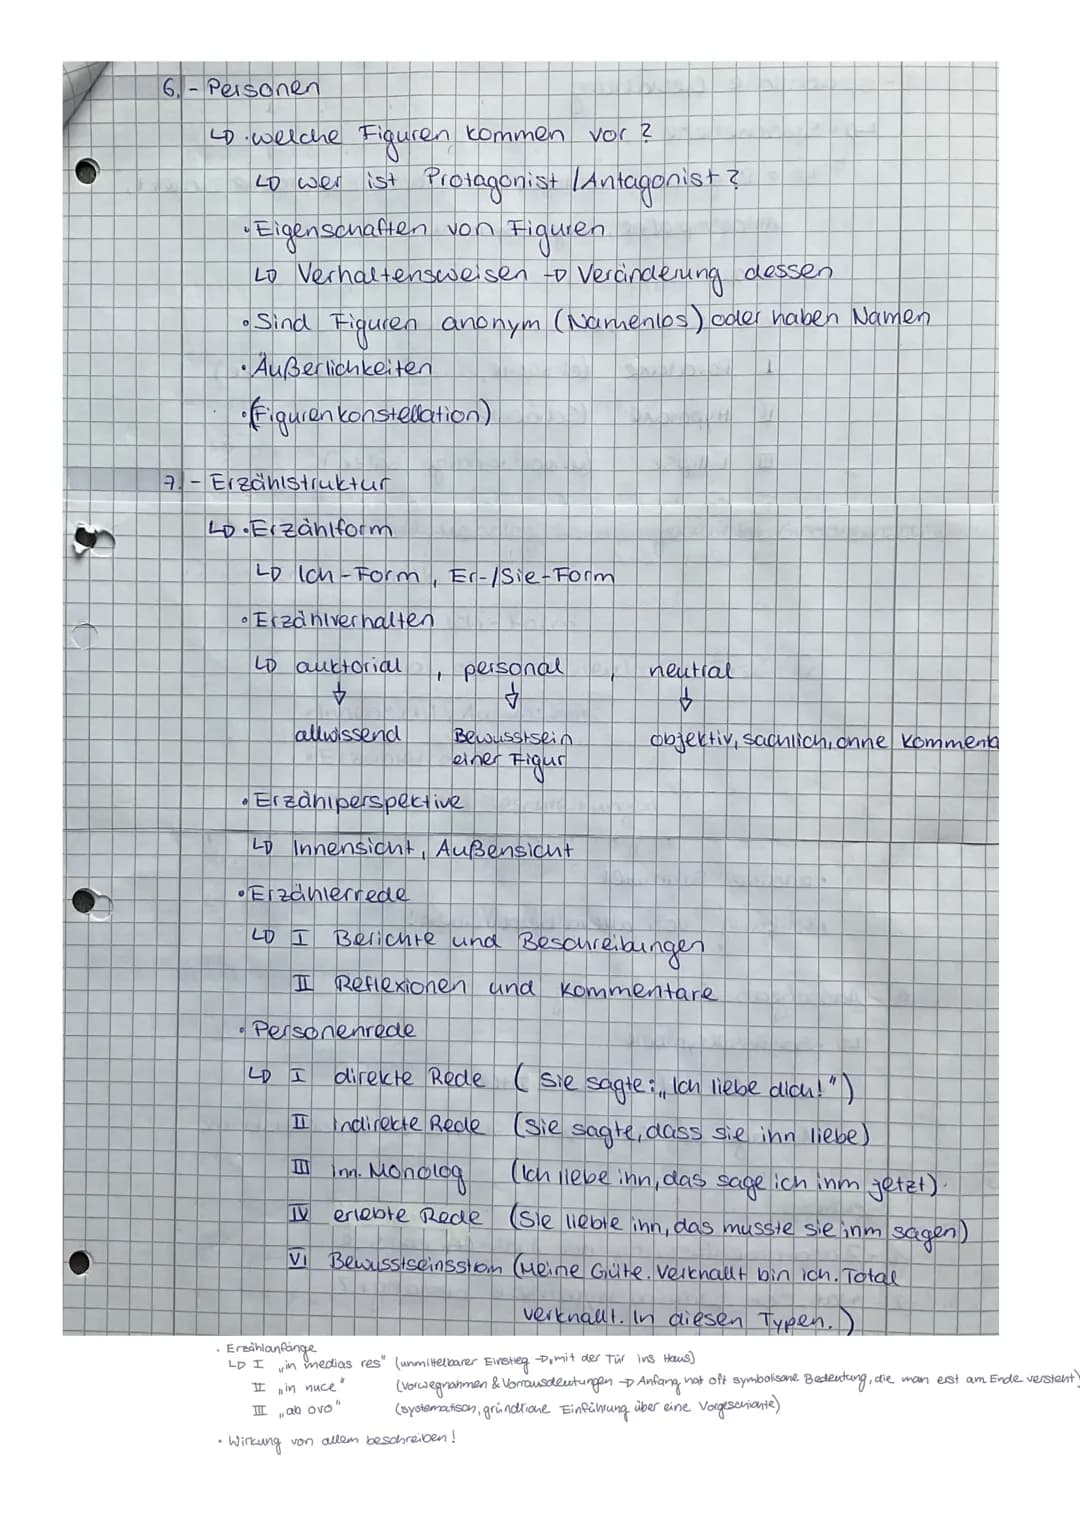 6.- Personen
↳ · welche Figuren kommen vor?
↳ wer ist Protagonist / Antagonist?
· Eigenschaften von Figuren
↳ Verhaltensweisen → Veränderung dessen
· Sind Figuren anonym (Namenlos) oder haben Namen
· Äußerlichkeiten
· (Figurenkonstellation)
7.- Erzählstruktur
↳ · Erzählform
↳ Ich-Form, Er-/Sie-Form
· Erzählverhalten
↳ auktorial, personal, neutral
↓ ↓ ↓
allwissend Bewusstsein objektiv, sachlich, ohne Kommenta
einer Figur
· Erzählperspektive
↳ Innensicht, Außensicht
· Erzählerrede
↳ I Berichte und Beschreibungen
II Reflexionen und Kommentare
· Personenrede
↳ I direkte Rede (Sie sagte: „Ich liebe dich!")
II indirekte Rede (Sie sagte, dass sie ihn liebe)
III inn. Monolog (Ich liebe ihn, das sage ich ihm jetzt).
IV erlebte Rede (Sie liebte ihn, das musste sie ihm sagen)
VI Bewusstseinsstrom (Meine Güte. Verknallt bin ich. Total
verknallt. In diesen Typen.)
· Erzählanfänge
↳ I „in medias res" (unmittelbarer Einstieg → „mit der Tür ins Haus)
II „in nuce" (Vorwegnahmen & Vorrausdeutungen → Anfang hat oft symbolische Bedeutung, die man erst am Ende versteht)
III „ab ovo" (systematisch, gründliche Einführung über eine Vorgeschichte)
· Wirkung von allem beschreiben!